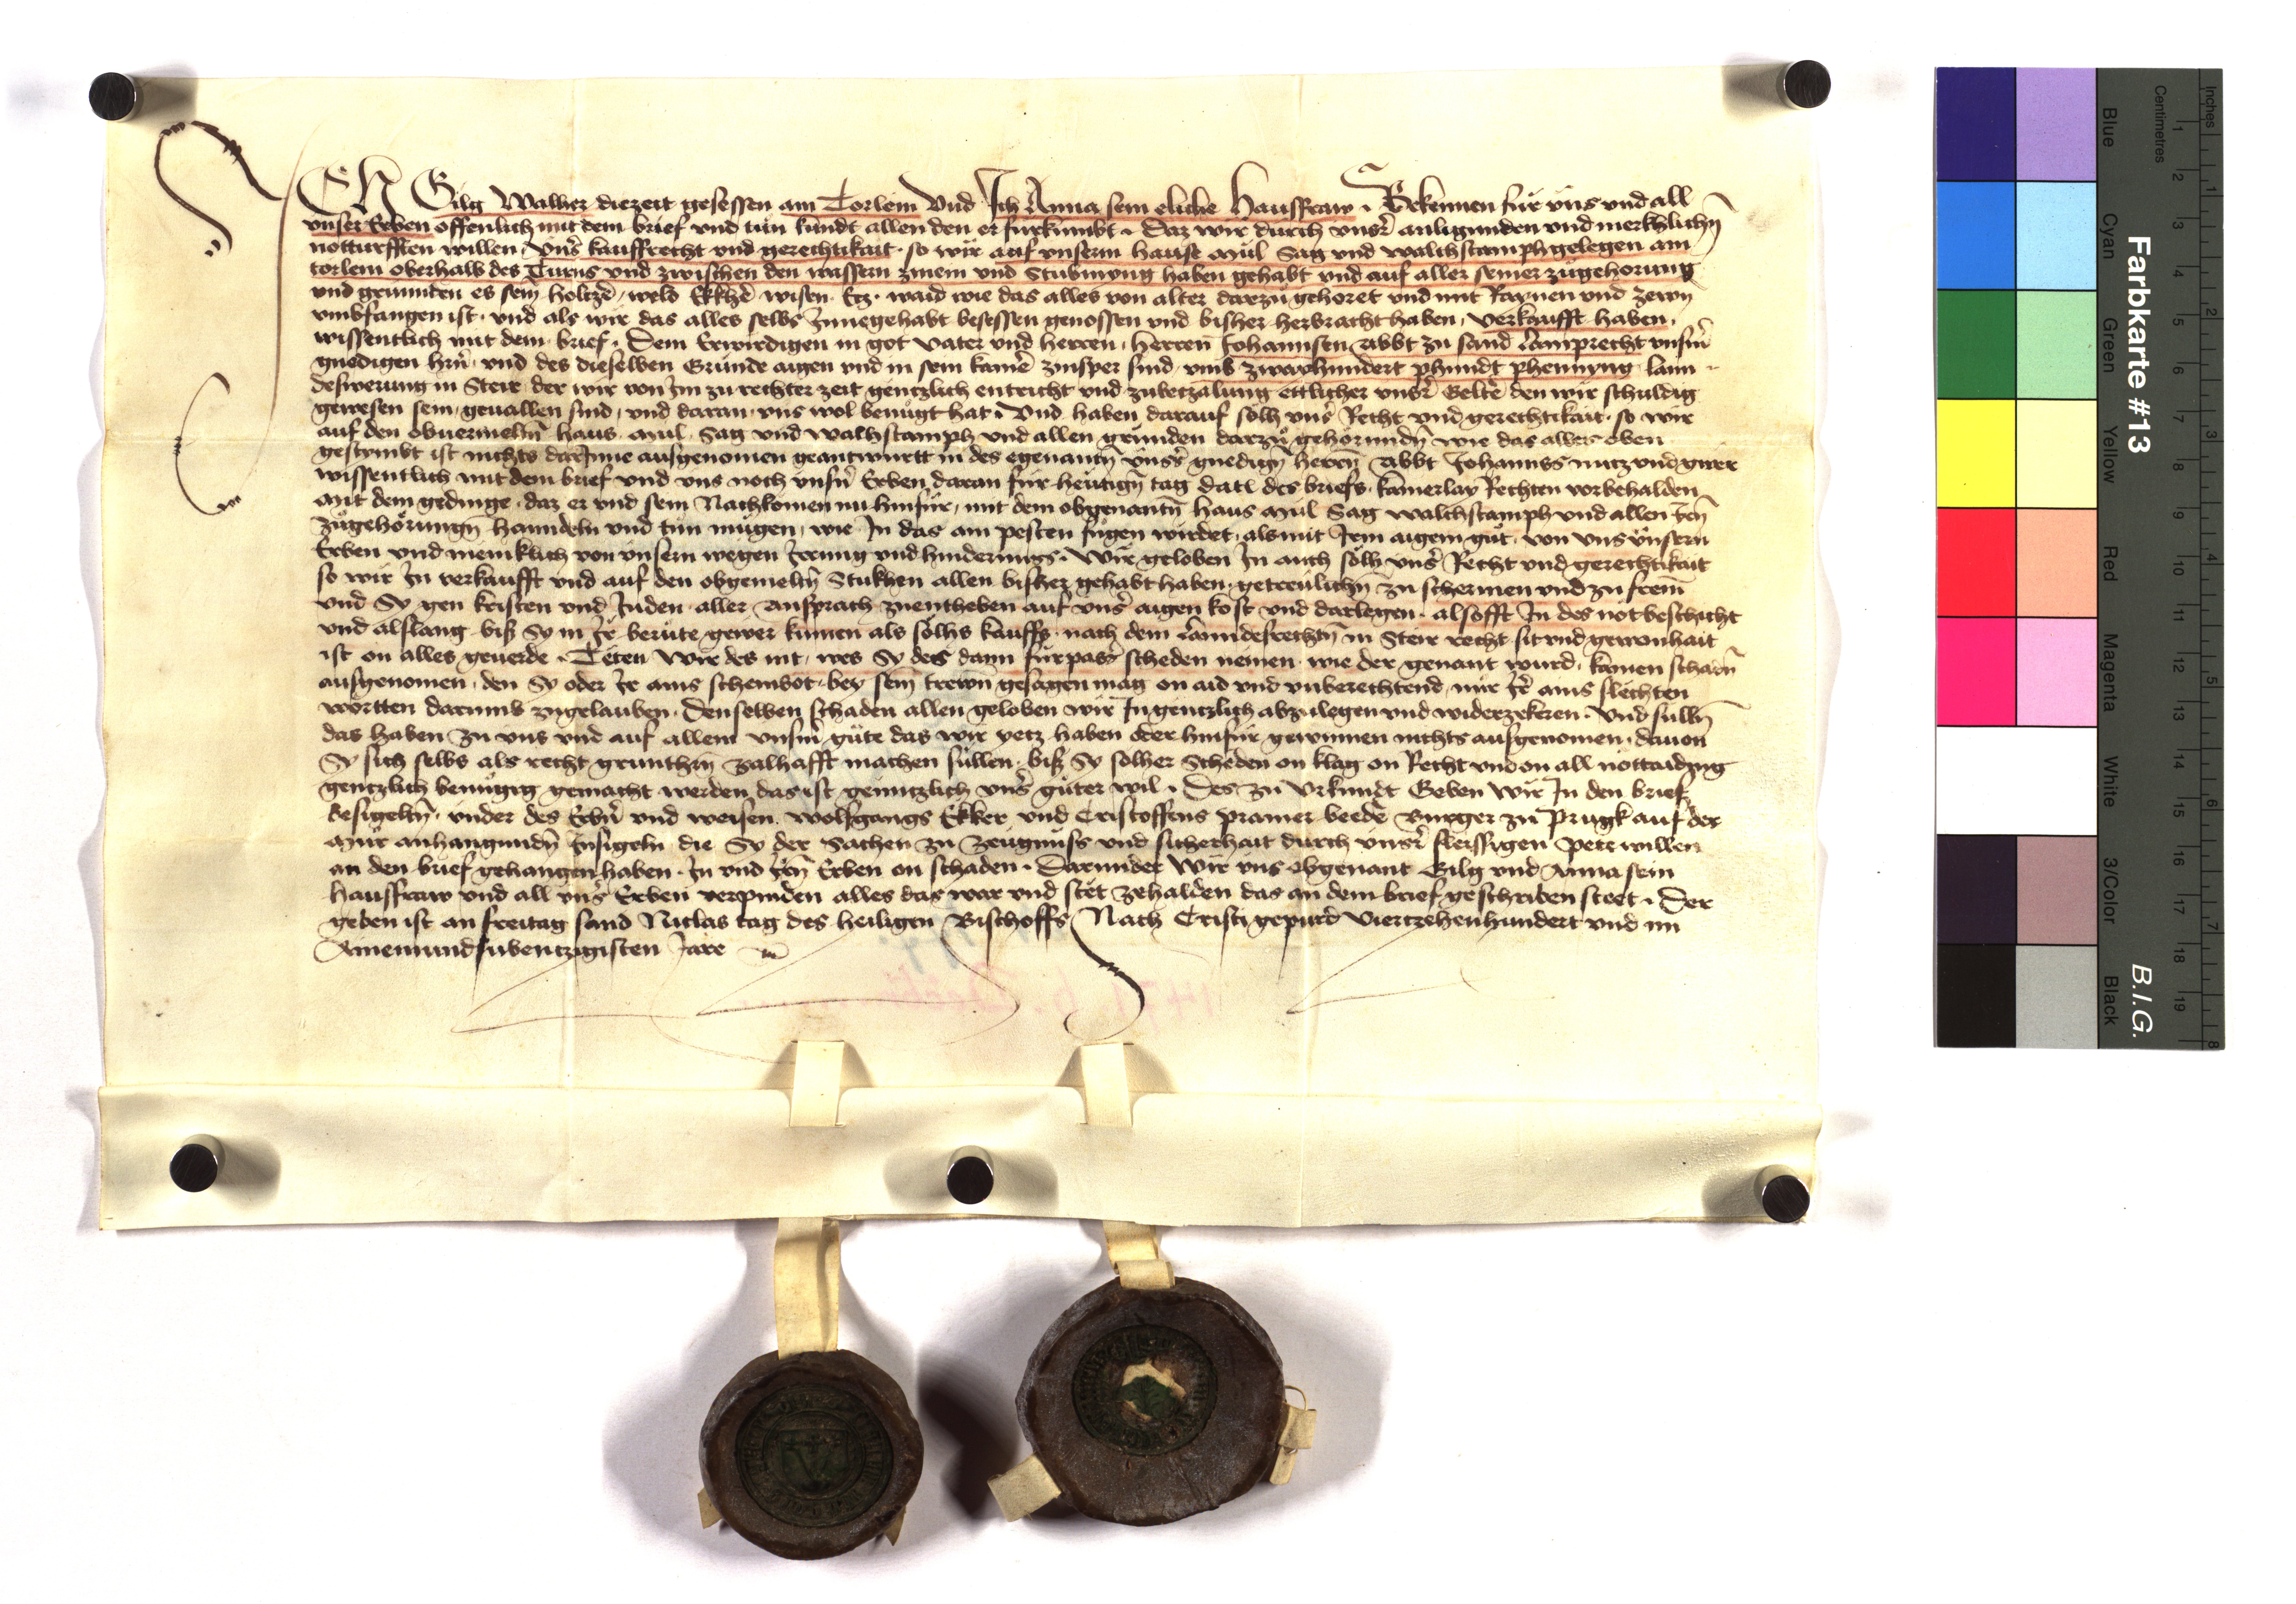 ICH Gilg Walher diezeit gesessen am Torlein Vnd Ich Anna sein eliche Hausfraw . Bekennen für vns vnd all
vnser Erben offenlich mit dem brief vnd tun kundt allen den er fürkumbt . Daz wir durch vnsr anligunden vnd merkhlichn
notturfften willen . vnsr kauffrecht vnd gerechtikait . so wir auf vnserm hause Mül Sag vnd walchstamph gelegen am
torlein oberhalb des Turns vnd zwischen den wassern zmein vnd Stubmyng haben gehabt vnd auf aller seiner zůgehorung
vnd grunnten es sein holtze / veld Ekkhe wisen Etz . waid wie das alles von alter darzů gehoret vnd mit Raynen vnd zewn
vmbfangen ist . vnd als wir das alles selbs Innegehabt besessen genossen vnd bisher herbracht haben , verkaufft haben ,
wissentlich mit dem brief . Dem Erwirdigen in got vater vnd herren , herren Johannsen Abbt zu sand Lamprecht vnsrm
gnedigen hrn , vnd des dieselben Gründe aigen vnd in sein kamer zinsper sind , vmb zwayhundert phundt phennyng lann
deswerung in Steir . der wir von Im zu rechter zeit gentzlich entricht vnd zubetzalung ettlicher vnsr Gelter den wir schuldig
gewesen sein , geuallen sind , vnd daran vns wol benügt hat . Vnd haben darauf sölh vnsr Recht vnd gerechtikait . so wir
auf den obuermeltn haus . Mül . Sag vnd walhstamph vnd allen gründen darzů gehörundn wie das alles oben
gestymbt ist nichts darInne ausgenomen geantwurtt in des egenantn vnsrs gnedign herrn Abbt Johannss nutz vnd gwer
wissentlich mit dem brief vnd vns noch vnsrn Erben daran für heutign tag datl des briefs kainerlay Rechten vorbehalden
Mit dem gedinge . daz er vnd sein Nachkomen nu hinfür , mit dem obgenantn haus Mül Sag walchstamph vnd allen Irn
zůgehörungn hanndeln vnd tun mügen , wie In das am pesten fügen wirdet . als mit Irem aigem gut . von vns vnsern
Erben vnd meniklich von vnsern wegen Irrung vnd hindernuss . Wir geloben In auch sölh vnsr Recht vnd gerechtikait
so wir In verkaufft vnd auf den obgemeltn Stukhen allen bisher gehabt haben . getreulichn zu schermen vnd zu freim
vnd Sy gen kristen vnd Juden aller Ansprach zuentheben auf vnsr aigen kost vnd darlegen . alsofft In des not beschicht
vnd alslang biss Sy in Ir berute gewer kumen als sölhs kauffs . nach dem Lanndesrechtn in Steir recht sit vnd gewonhait
ist on alles geuerde . Teten wir des nit , wes Sy des dann fürpasr scheden nemen . wie der genant wurd . kainen schadn
ausgenomen . den Sy oder Ir ains scheinbot . bey sein trewn gesagen mag on aid vnd vnberechtend , nur Ir ains slechten
wortten darumb zugelauben . Denselben schaden allen geloben wir In gentzlich abzulegen vnd widerzekeren . Vnd sulln
das haben zu vns vnd auf allem vnsrm gůte das wir yetz haben oder hinfür gewinnen nichts ausgenomen . dauon
Sy sich selbs als recht gruntherrn zalhafft machen süllen . biss Sy solher Scheden on klag on Recht vnd on all nottaidung
gentzlich benügig gemacht werden , das ist genntzlich vnsr gůter wil . Des zu Vrkundt Geben wir In den brief
besigeltn . vnder des Erbrn vnd weisen . wolfgangs Ekker vnd Cristoffens pramer beede Burger zu Prugk auf der
Mur anhangundn Insigeln die Sy der Sachen zu zeugnuss vnd sicherhait durch vnsr fleissigen pete willen
an den brief gehangen haben . In vnd Irn Erben on schaden . Darunder wir vns obgenant Gilg vnd Anna sein
hausfraw vnd all vnsr Erben verpinden alles das war vnd stet zehalden das an dem brief geschriben steet . Der
geben ist an freitag sand Niclas tag des heiligen Bischoffs Nach Cristi gepurd Viertzehenhundert vnd im
Ainemundsibentzigisten Jare
Farbkarte #13
B.I.G.
Blue
Cyan
Green
Yellow
Red
Magenta
White
3/Color
Black
Centimetres
Inches
1 2 3 4 5 6 7 8 9 10 11 12 13 14 15 16 17 18 19
1 2 3 4 5 6 7 8